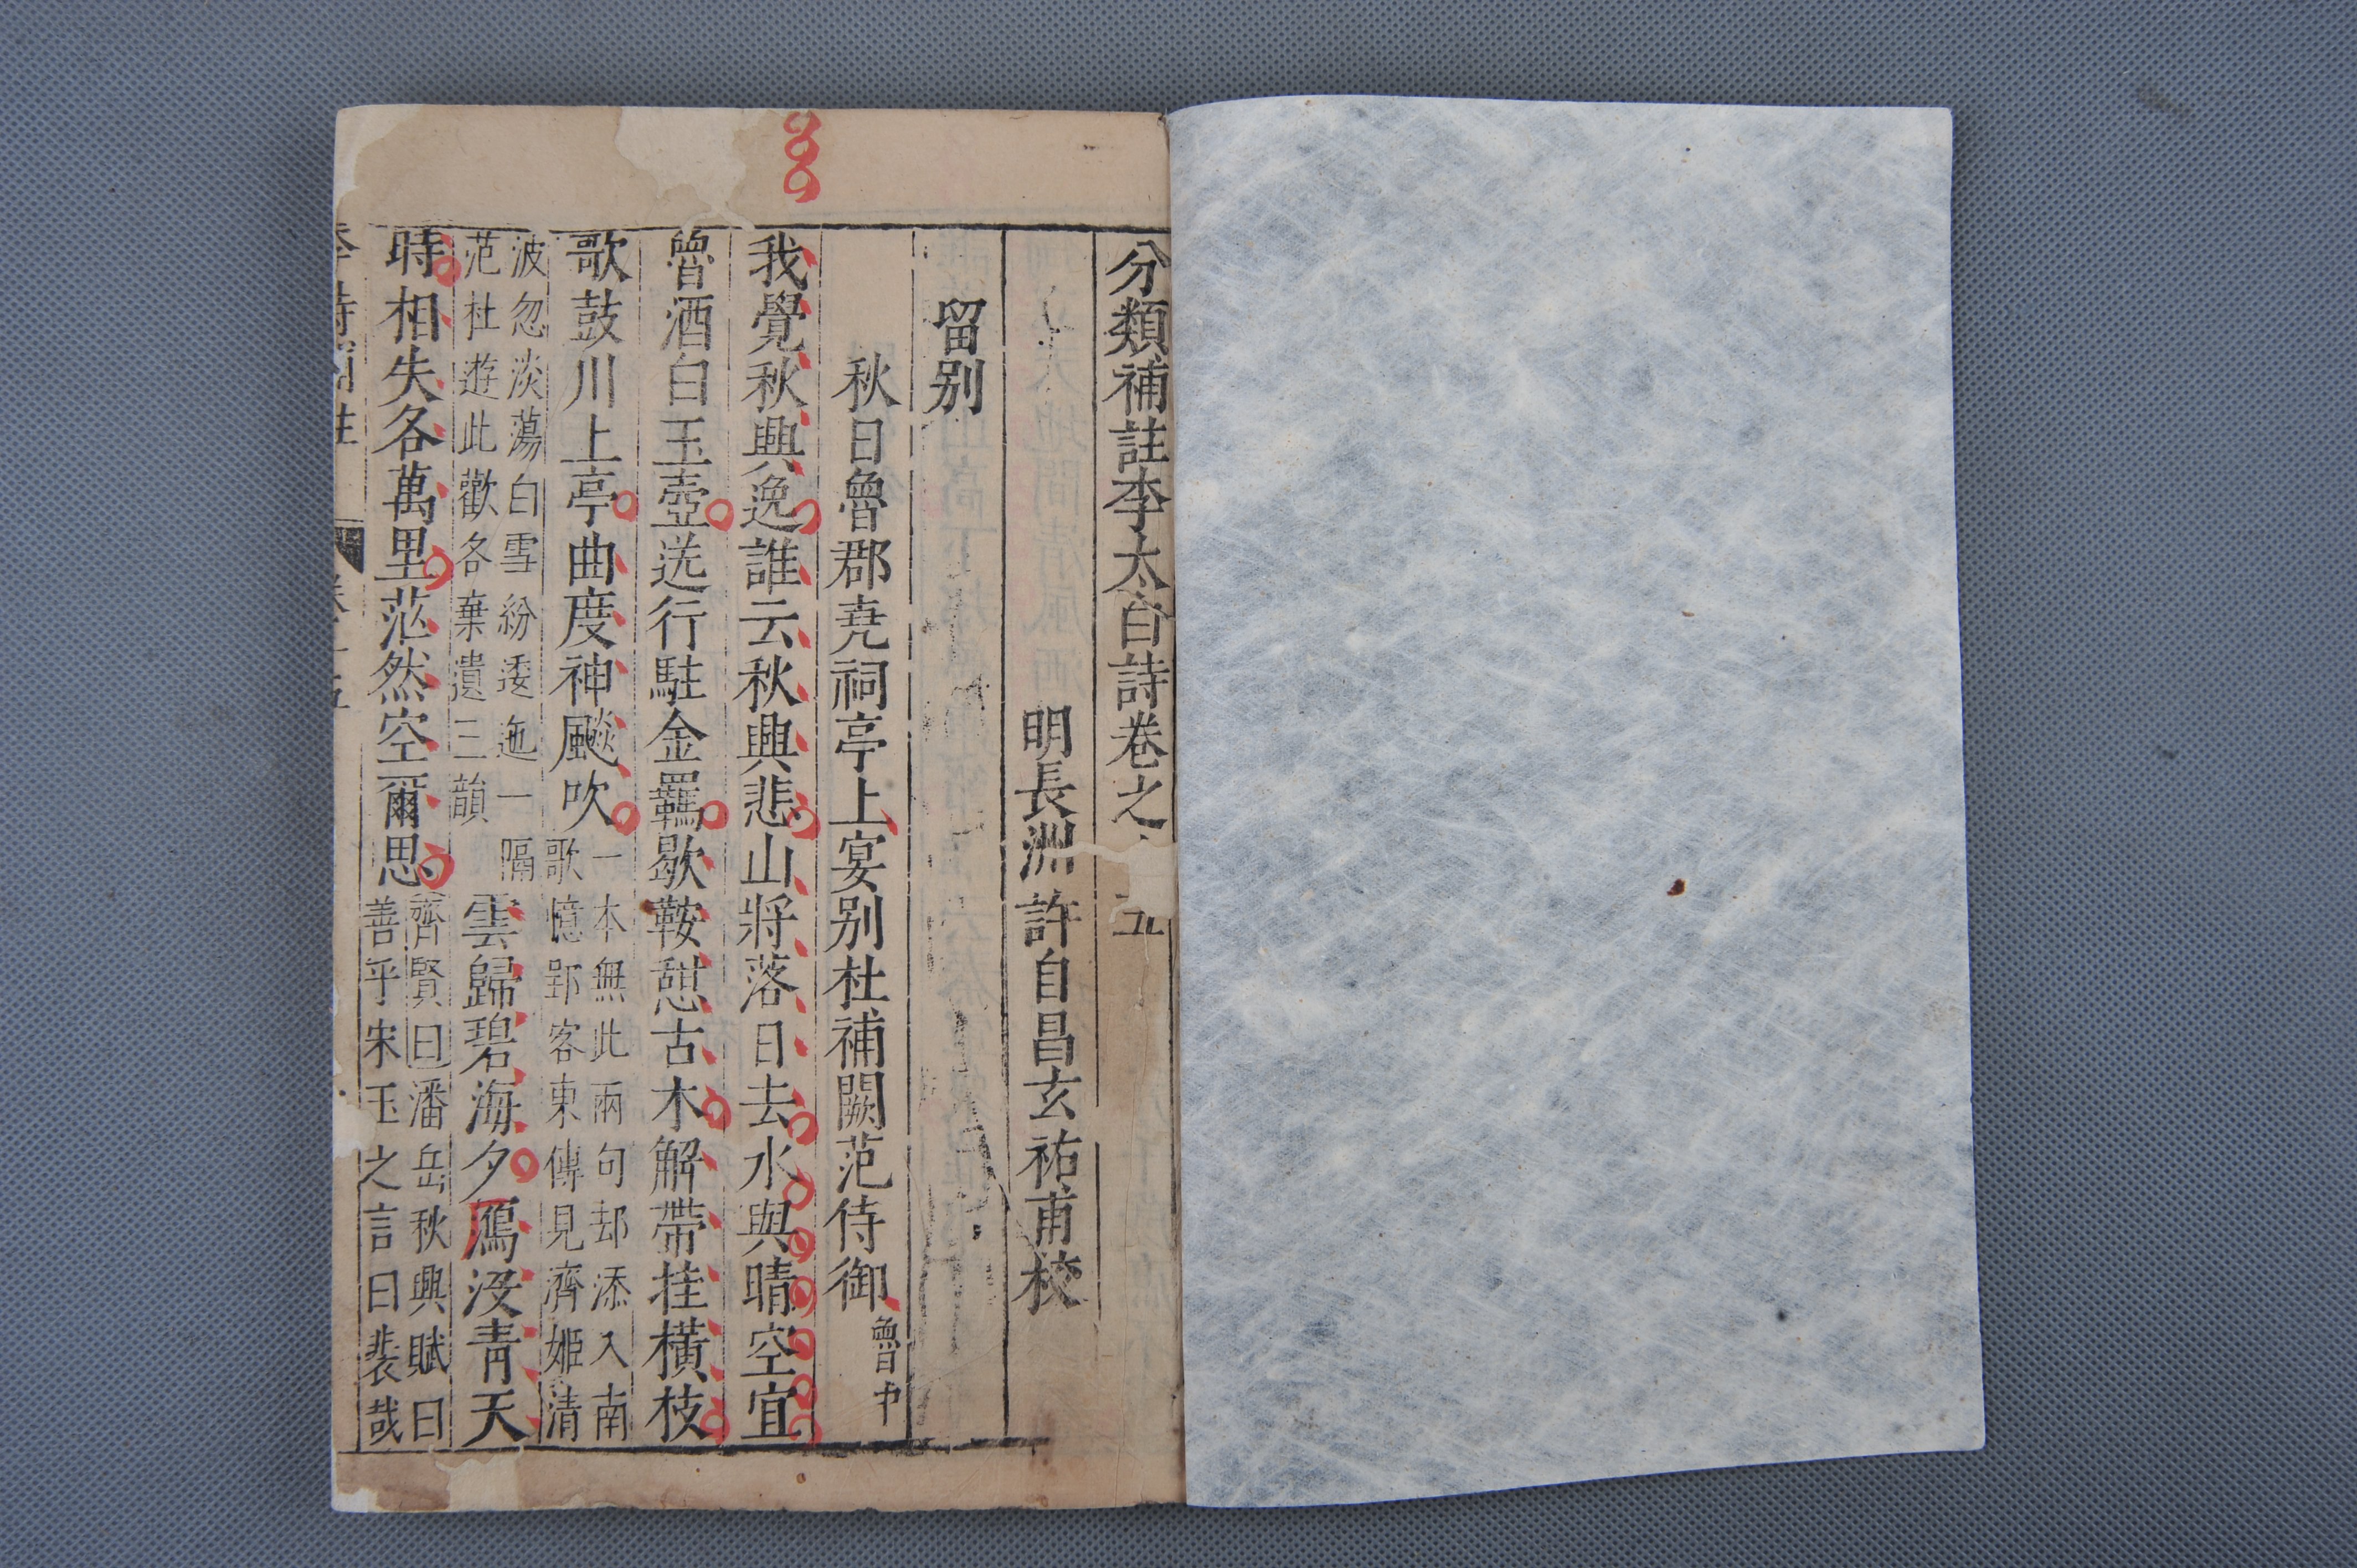 分類補註李太白詩卷之 五
明長洲許自昌玄祐甫校
留别
秋日魯郡堯祠亭上宴别杜補闕范侍御 魯中
我覺秋興逸誰云秋興悲山將落日去水與晴空宜
魯酒白玉壺送行駐金羈歇鞍憇古木解帶挂横枝
歌鼓川上亭曲度神飈吹 一本無此兩句却添入南
歌憶郢客東傳見齊姬清
波忽淡蕩白雪紛逶迤一隔
范杜遊此歡各棄遺三韻 雲歸碧海夕鴈没青天
時相失各萬里茫然空爾思 齊賢曰潘岳秋興賦曰
善乎宋玉之言曰裴哉